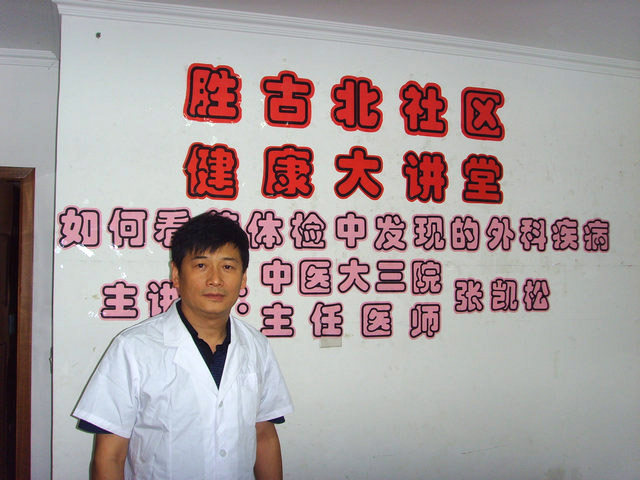 胜古北社区
健康大讲堂
如何看 体检中发现的外科疾病
主讲：中医大三院 张凯松
主任医师